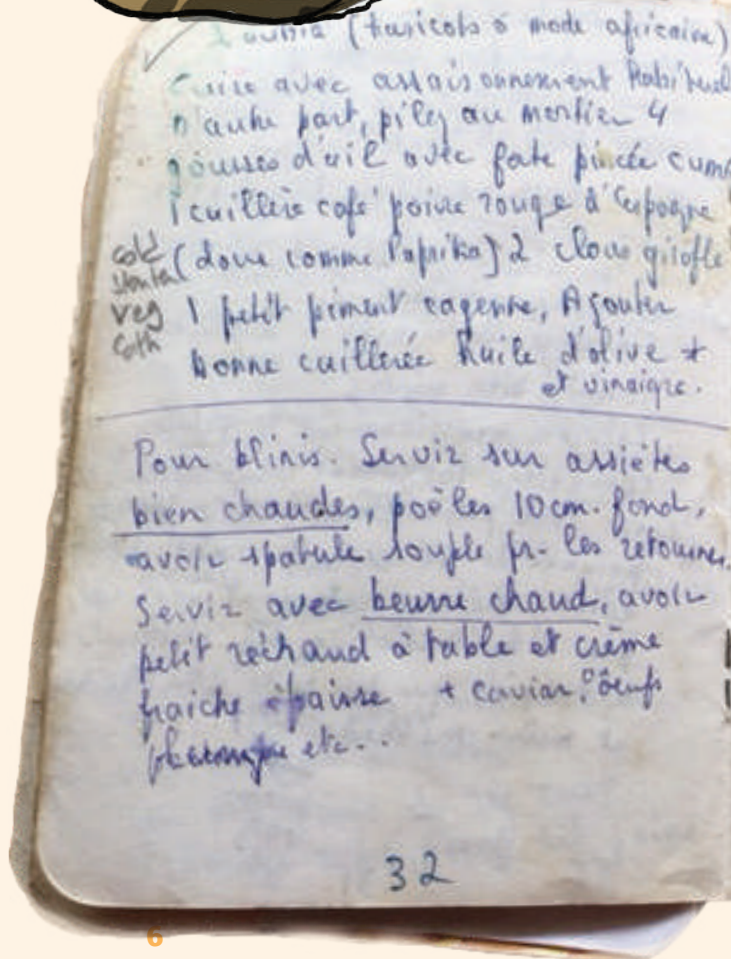 Loubia (haricots à mode africaine)
Cuire avec assaisonnement habituel
D'autre part, pilez au mortier 4
gousses d'ail avec forte pincée cum
1 cuillère café poivre rouge d'Espagne
(doux comme Paprika) 2 clous girofle
1 petit piment cayenne, Ajouter
bonne cuillerée huile d'olive +
et vinaigre.
cold
veg
Pour blinis. Servir sur assiètes
bien chaudes, poëles 10 cm. fond,
avoir spatule souple pr. les retourner.
Servir avec beurre chaud, avoir
petit réchaud à table et crème
fraiche épaisse + caviar, oeufs
etc...
32
6